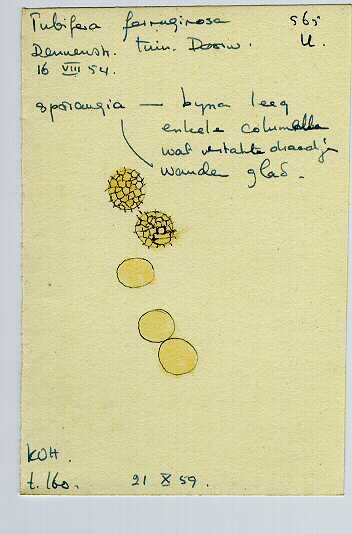 Tubifera ferruginosa 565
Dennenstr. tuin. Doorw. U.
16 VIII 54.
sporangia — byna leeg
enkele columella
wat vertakte draadjes
wanden glad.
KOH.
t. 160. 21 X 59.